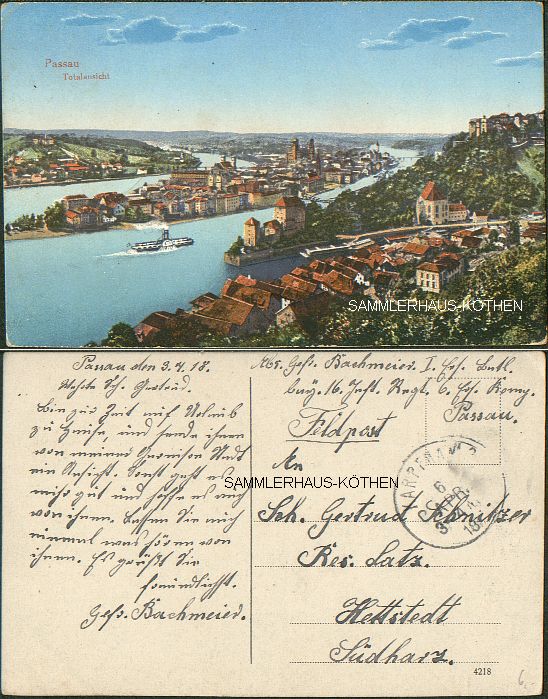 Passau
Totalansicht
SAMMLERHAUS-KÖTHEN
Passau den 3.4.18.
Abs. Gefr. Bachmeier. I. Ers. Batl.
Sch. Gertrud.
16. Inft. Regt. 6. Komp.
Passau.
Feldpost
Bin zur Zeit auf Urlaub
zu Hause, und sende ihnen
von meiner Stadt
ein Ansicht. Sonst geht es
mir gut und hoffe es auch
von ihnen. Lassen Sie auch
einmal was hören von
ihnen. Es grüßt Sie
freundlichst.
Gefr. Bachmeier.
An
SAMMLERHAUS-KÖTHEN
Sch. Gertrud Schnitzer
Res. Laz.
Hettstedt
Südharz.
4218
6.